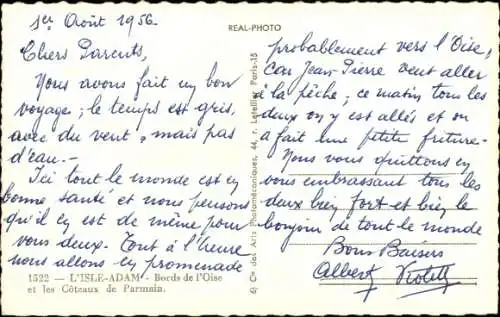 1er Août 1956.
REAL-PHOTO
Chers Parents,
Nous avons fait un bon
voyage ; le temps est gris,
avec du vent, mais pas
d'eau. -
Ici tout le monde est en
bonne santé et nous pensons
qu'il en est de même pour
vous deux. Tout à l'heure
nous allons en promenade
1522 — L'ISLE-ADAM - Bords de l'Oise
et les Côteaux de Parmain.
Cie des Arts Photomécaniques, 44, r. Letellier, Paris-15
probablement vers l'Oise,
car Jean Pierre veut aller
à la pêche ; ce matin tous les
deux on y est allés et on
a fait une petite friture.
Nous vous quittons en
vous embrassant tous les
deux bien fort et bien le
bonjour de tout le monde
Bons Baisers
Albert Violette